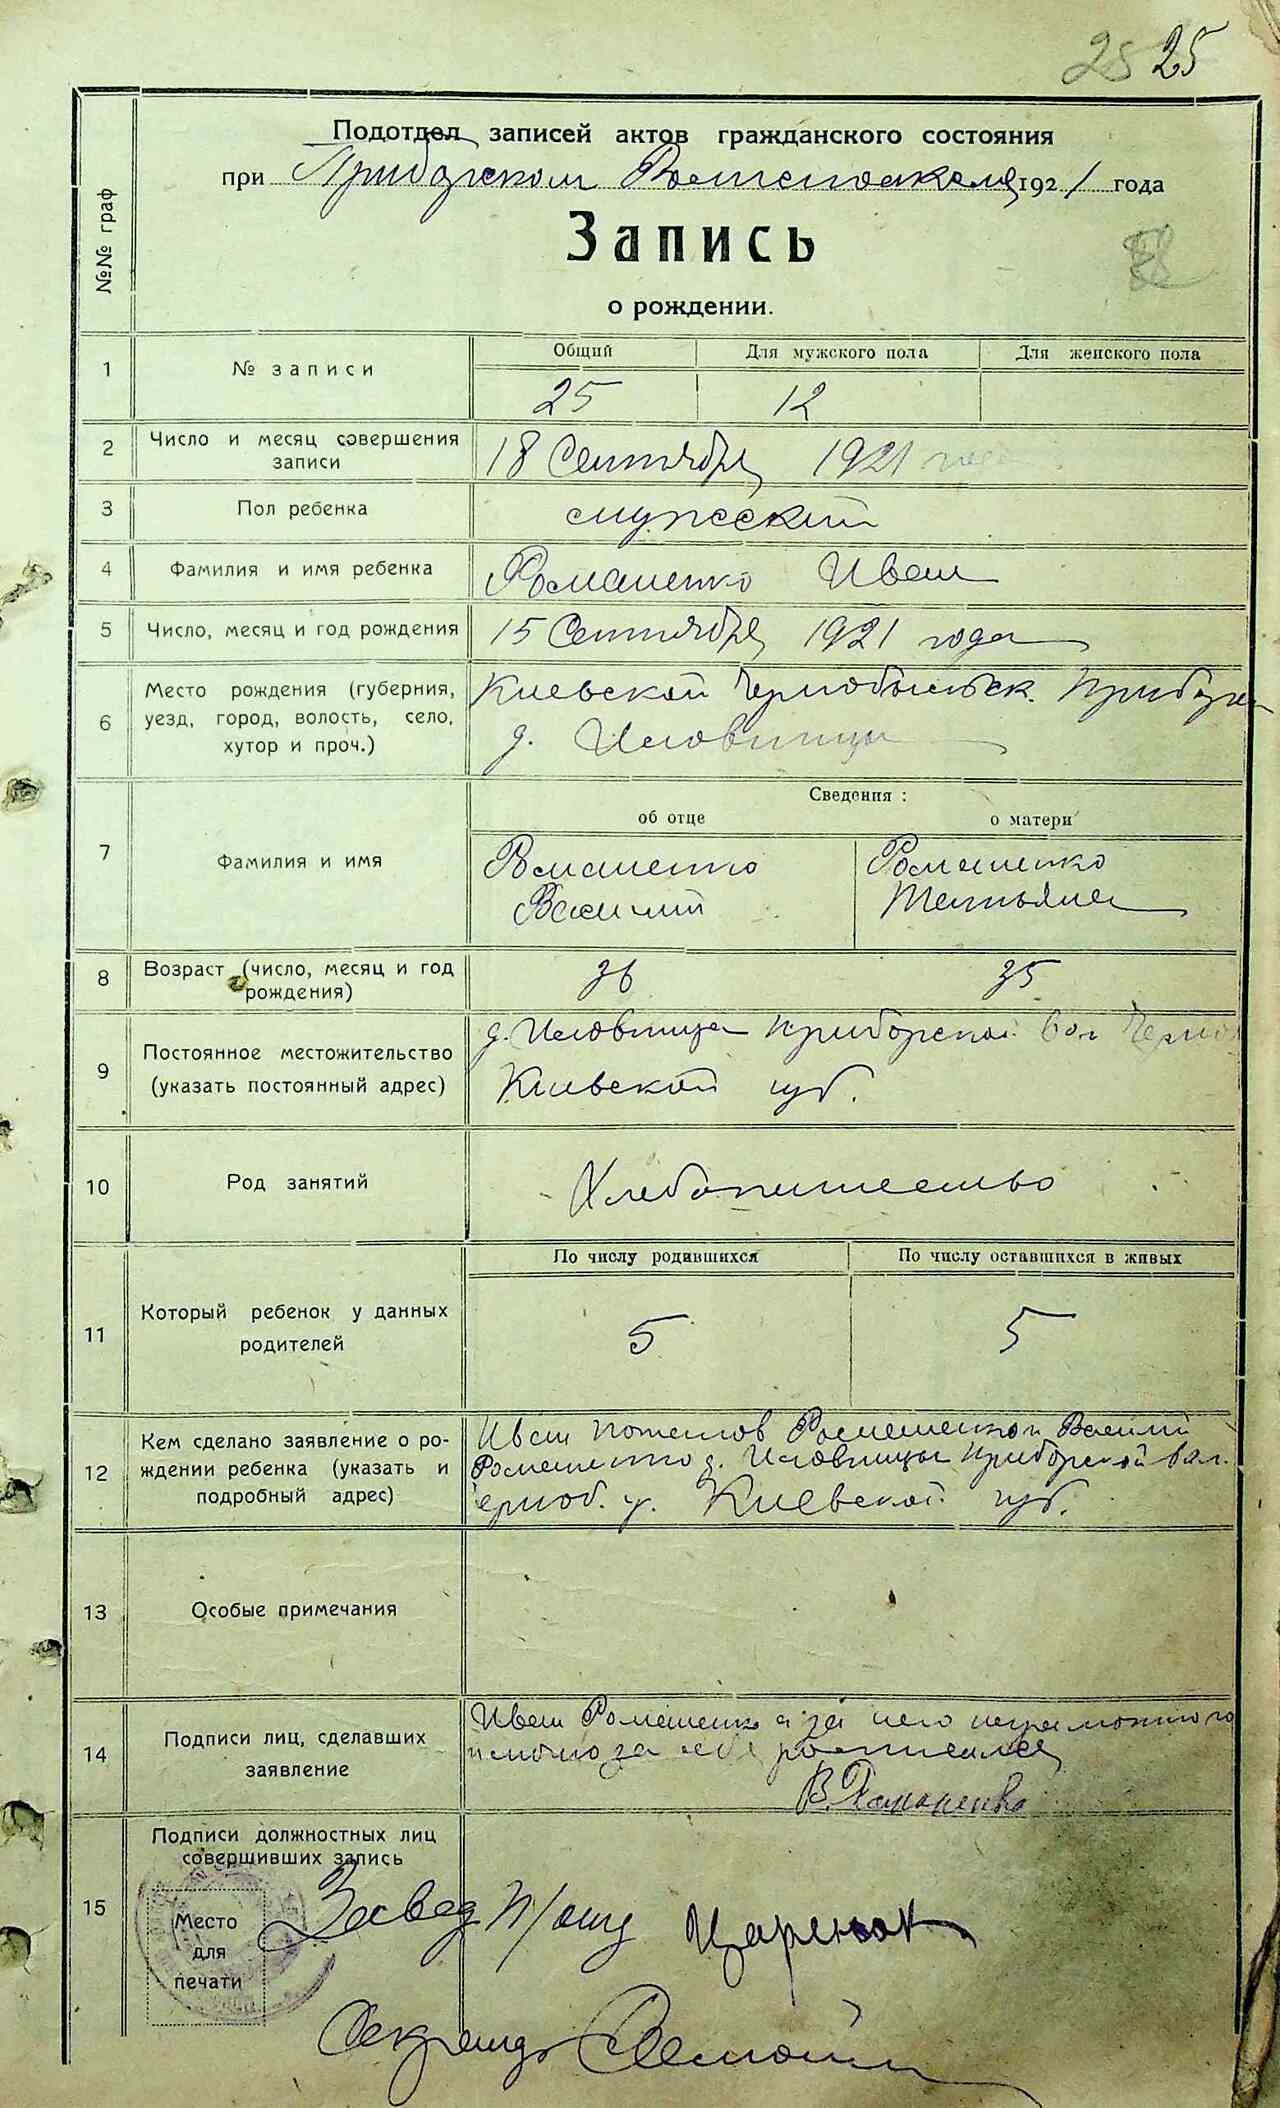 25 25
Подотдел записей актов гражданского состояния
при Приборском 1921 года
Запись
о рождении.
№№ граф
Общий Для мужского пола Для женского пола
1 № записи 25 12
2 Число и месяц совершения записи 18 Сентября 1921 года
3 Пол ребенка мужеский
4 Фамилия и имя ребенка Романенко Иван
5 Число, месяц и год рождения 15 Сентября 1921 года
6 Место рождения (губерния, Киевской Чернобыльск. Приборской
уезд, город, волость, село, д. Иловница
хутор и проч.)
Сведения:
об отце о матери
7 Фамилия и имя Романенко Романенко
Василий Татьяна
8 Возраст (число, месяц и год рождения) 36 35
9 Постоянное местожительство д. Иловница Приборской вол Черно
(указать постоянный адрес) Киевской губ.
10 Род занятий Хлебопашество
По числу родившихся По числу оставшихся в живых
11 Который ребенок у данных
родителей 5 5
12 Кем сделано заявление о ро- Иван Романенко и Василий
ждении ребенка (указать и Романенко д. Иловница Приборской вол.
подробный адрес) Черноб. у. Киевской губ.
13 Особые примечания
14 Подписи лиц, сделавших Иван Романенко а за него неграмотного
заявление и лично за себя росписался
В. Романенко
Подписи должностных лиц
совершивших запись
15 Завед П/отд
Место
для
печати
Секретарь